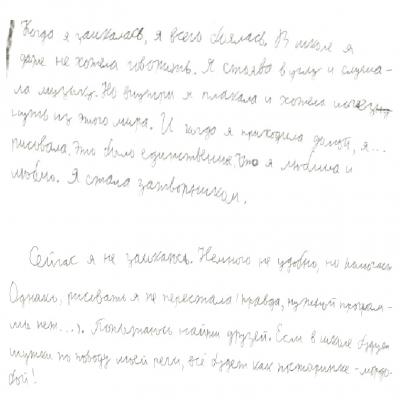 Когда я заикалась, я всего боялась. В школе я
даже не хотела говорить. Я стояла в углу и слуша-
ла музыку. Но внутри я плакала и хотела исчез
нуть из этого мира. И когда я приходила домой, я...
рисовала. Это было единственное что я любила и
люблю. Я стала затворником.
Сейчас я не заикаюсь. Немного не удобно, но
Однако, рисовать я не перестала (правда, нужной програм-
мы нет...). Попытаюсь найти друзей. Если в школе будут
шутки по поводу моей речи, всё будет как по старинке - мордо-
бой!